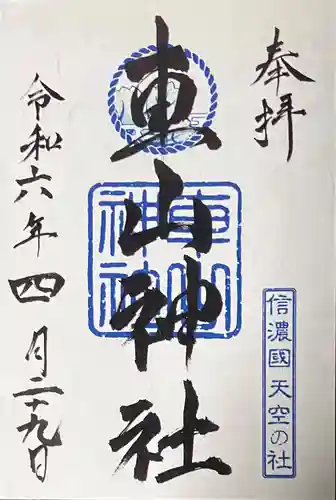 奉拝
信濃國 天空の社
車山神社
車山神社
令和六年四月二十九日